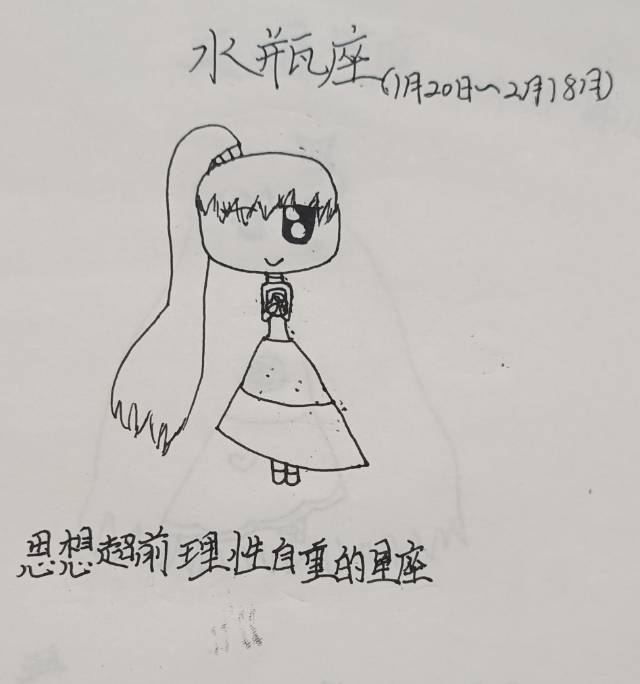 水瓶座(1月20日~2月18月)
思想超前理性自重的星座